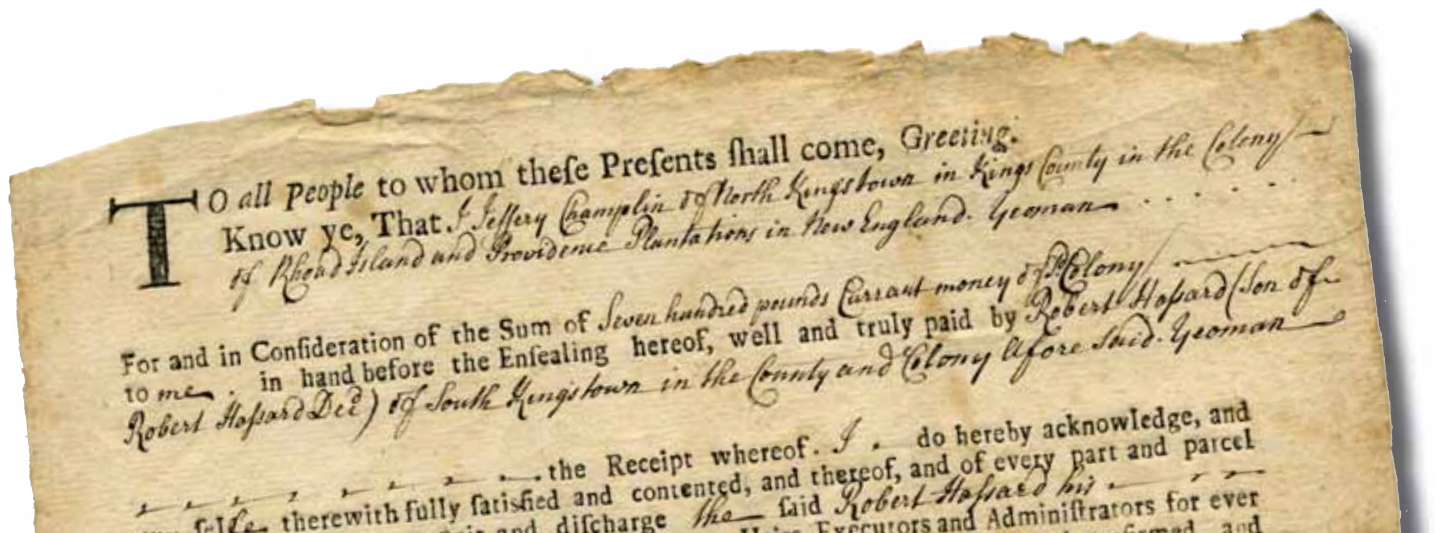 TO all People to whom theſe Preſents ſhall come, Greeting.
Know ye, That I Jeffery Champlin of North Kingstown in Kings County in the Colony
of Rhoad Island and Providence Plantations in New England. Yeoman
For and in Conſideration of the Sum of Seven hundred pounds Currant money of sd Colony
to me in hand before the Enſealing hereof, well and truly paid by Robert Haſsard (Son of
Robert Haſsard Decd) of South Kingstown in the County and Colony Afore Said. Yeoman
the Receipt whereof I do hereby acknowledge, and
ſelfe therewith fully ſatisfied and contented, and thereof, and of every part and parcel
and diſcharge the ſaid Robert Haſsard his
Heirs, Executors and Administrators for ever